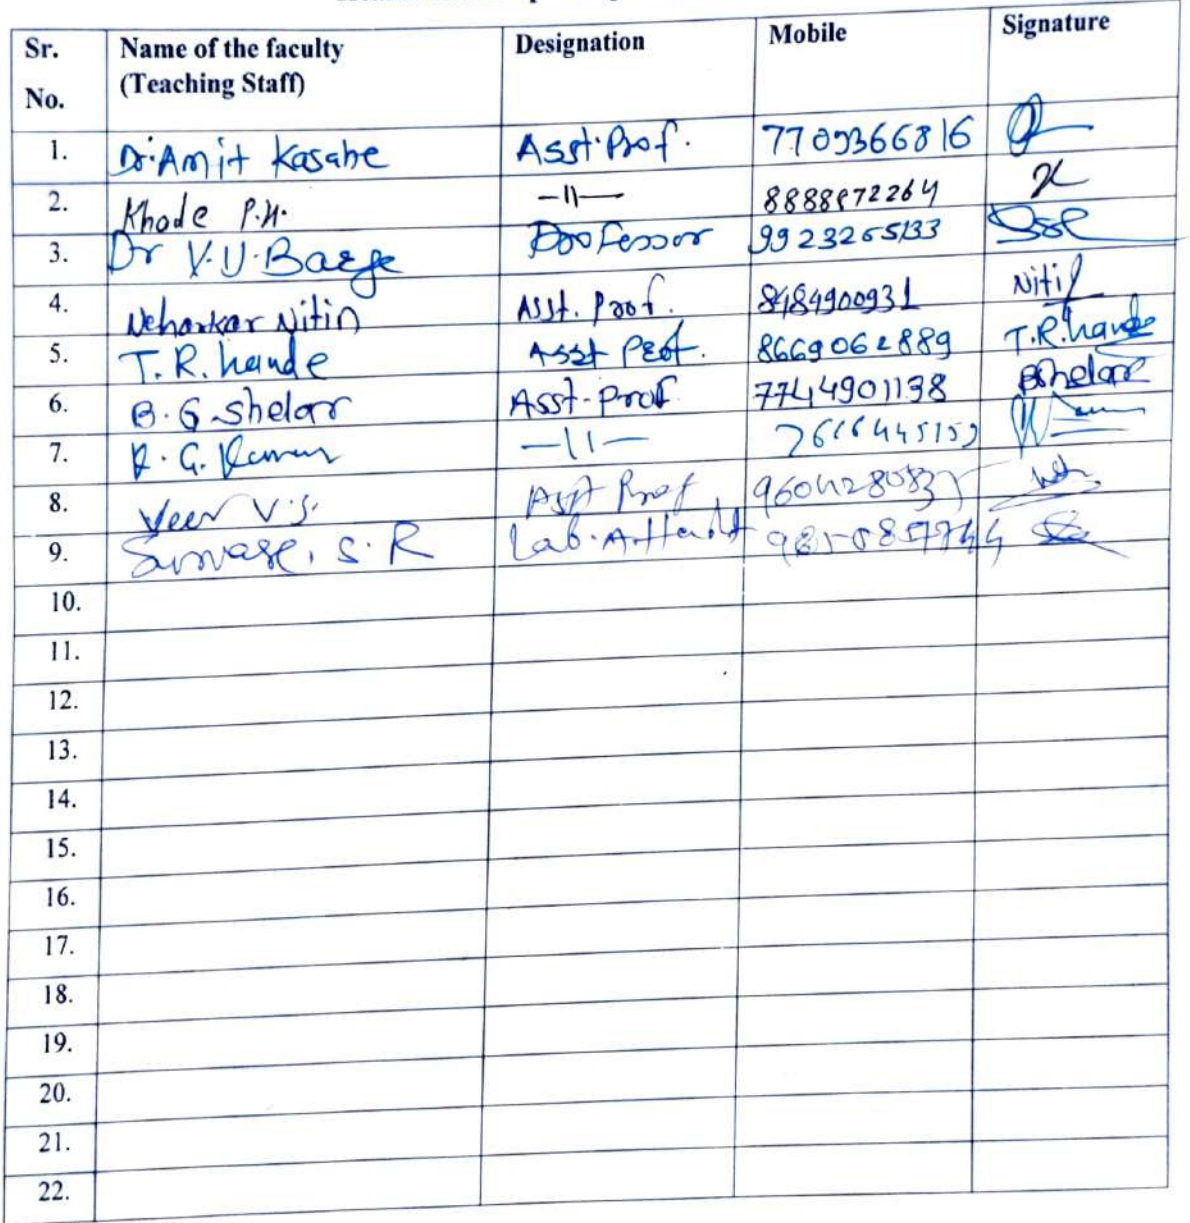 Sr. No. Name of the faculty (Teaching Staff) Designation Mobile Signature
1. Dr. Amit Kasabe Asst. Prof. 7709366816
2. Khode P.H. —11— 8888872264
3. Dr V.U. Barge Professor 9923265133
4. Neharkar Nitin Asst. Prof. 8484900931 Nitin
5. T. R. hande Asst Prof. 8669062889 T.R.hande
6. B. G Shelar Asst-Prof 7744901138 BShelar
7. R. G. —11—
8. Veer V.S. Asst Prof
9. Survase, S. R Lab. Attendt
10.
11.
12.
13.
14.
15.
16.
17.
18.
19.
20.
21.
22.